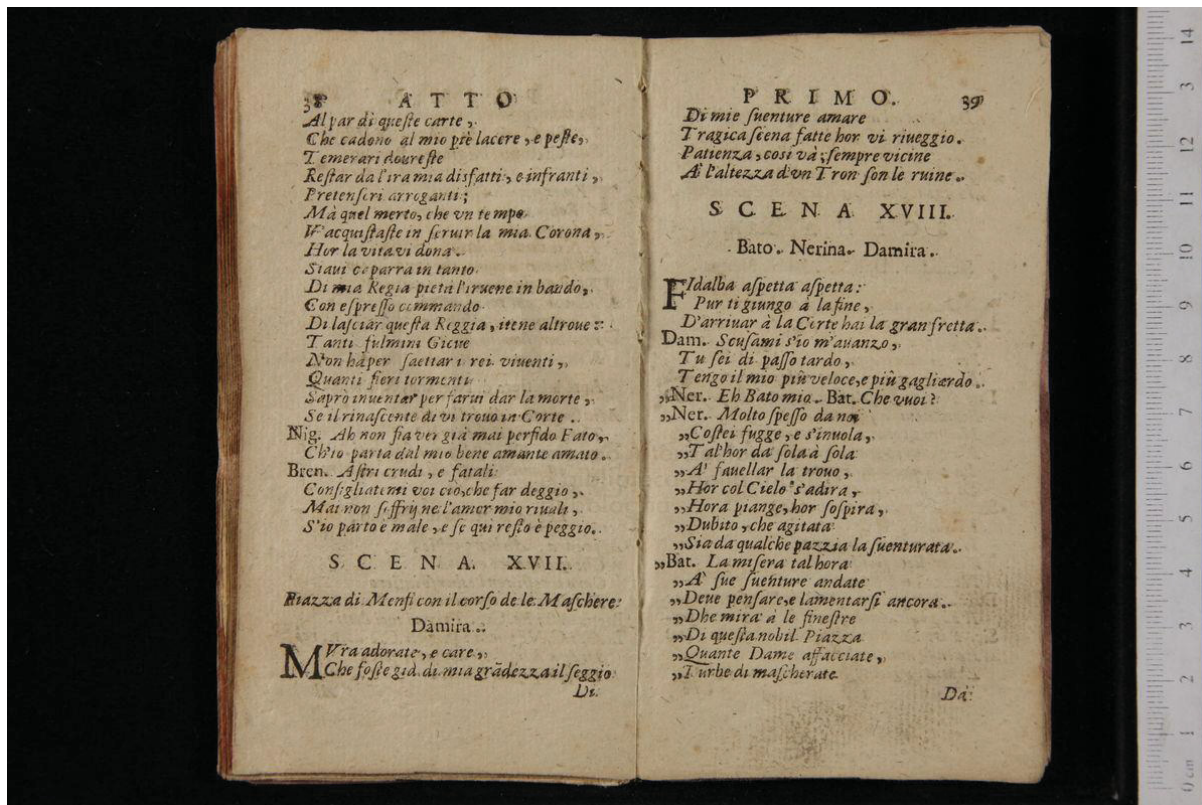 38 ATTO
Al par di queſte carte,
Che cadono al mio piè lacere, e peſte,
Temerari doureſte
Reſtar da l'ira mia disfatti, e infranti,
Pretenſori arroganti;
Mà quel merto, che vn tempo
V'acquiſtaſte in ſeruir la mia Corona,
Hor la vita vi dona.
Siaui caparra in tanto
Di mia Regia pietà l'iruene in bando,
Con eſpreſſo commando
Di laſciar queſta Reggia, itene altroue:
Tanti fulmini Gioue
Non hà per ſaettar i rei viuenti,
Quanti fieri tormenti
Saprò inuentar per farui dar la morte,
Se il rinaſcente dì vi troua in Corte.
Nig. Ah non fia ver già mai perfido Fato,
Ch'io parta dal mio bene amante amato.
Bren. Aſtri crudi, e fatali
Conſigliatemi voi ciò, che far deggio,
Mai non ſoffrij ne l'amor mio riuali,
S'io parto è male, e ſe qui reſto è peggio.
SCENA. XVII.
Piazza di Menfi con il corſo de le Maſchere:
Damira.
MVra adorate, e care,
Che foſte già di mia grãdezza il ſeggio
Di
PRIMO. 39
Di mie ſuenture amare
Tragica ſcena fatte hor vi riueggio.
Patienza, così và; ſempre vicine
A l'altezza d'vn Tron ſon le ruine.
SCENA XVIII.
Bato. Nerina. Damira.
FIdalba aſpetta aſpetta:
Pur ti giungo à la fine,
D'arriuar à la Corte hai la gran fretta.
Dam. Scuſami s'io m'auanzo,
Tu ſei di paſſo tardo,
Tengo il mio più veloce, e più gagliardo.
„Ner. Eh Bato mio. Bat. Che vuoi?
„Ner. Molto ſpeſſo da noi
„Coſtei fugge, e s'inuola,
„Tal'hor da ſola à ſola
„A' fauellar la trouo,
„Hor col Cielo s'adira,
„Hora piange, hor ſoſpira,
„Dubito, che agitata
„Sia da qualche pazzia la ſuenturata.
„Bat. La miſera tal hora
„A' ſue ſuenture andate
„Deue penſare, e lamentarſi ancora.
„Dhe mira à le fineſtre
„Di queſta nobil Piazza
„Quante Dame affacciate,
„Turbe di maſcherate
Da